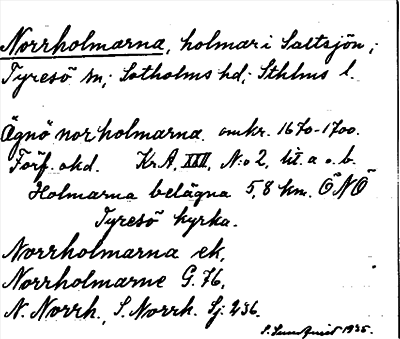 Norrholmarna, holmar i Saltsjön;
Tyresö sn; Sotholms hd; Sthlms l.
Ägnö norholmarna. omkr. 1670-1700.
Förf. okd. Kr.A. XXII, N:o 2, lit. a o. b.
Holmarna belägna 5,8 km. ÖNÖ
Tyresö kyrka.
Norrholmarna ek,
Norrholmarne G. 76,
N. Norrh., S. Norrh. Sj. 236.
1935.